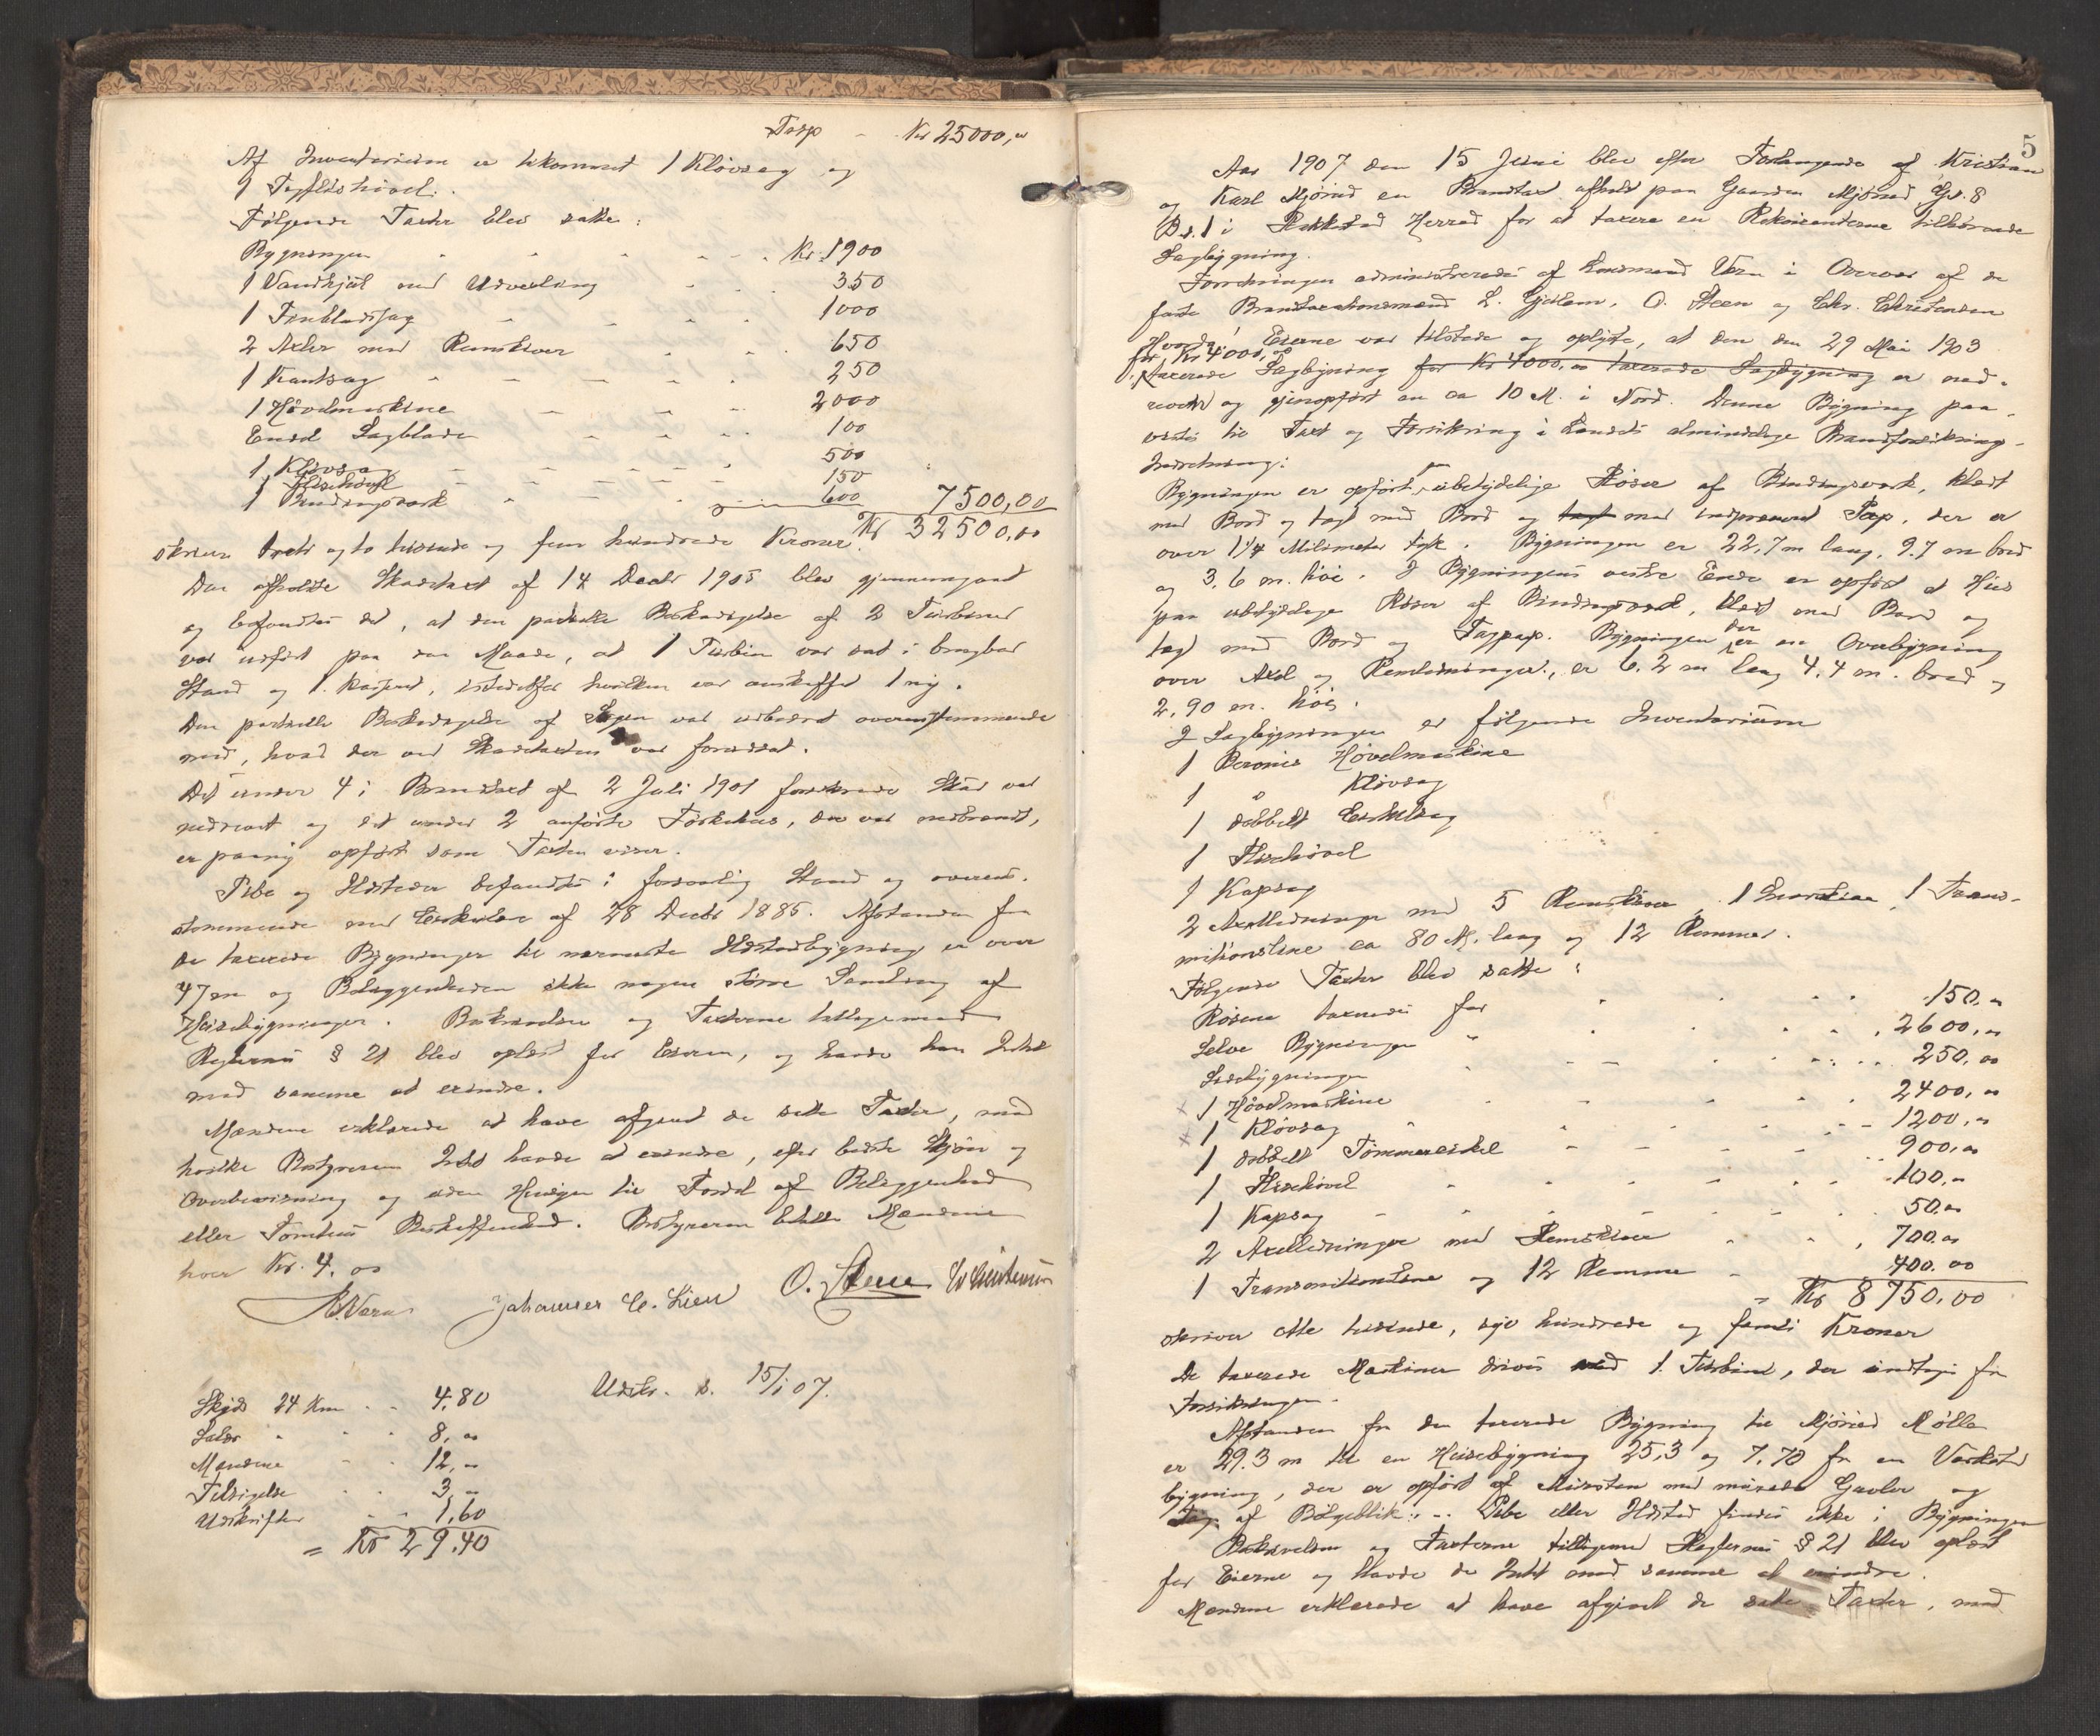 Tasp - Kr 25000,00
Af Inventarium er tilkommet 1 Kløvsag og
1 Flishøvel.
Følgende Taxter blev satte:
Bygningen - - - - - Kr. 1900
1 Vandhjul med Udvexling - - - 350
1 Finbladsag - - - - - 1000
2 Axler med Remskiver - - - 650
1 Kantsag - - - - - 250
1 Høvelmaskine - - - - 2000
Endel Sagblade - - - - 100
1 Kløvsag - - - - - 500
1 Flishøvl - - - - - 150
1 Bindingsverk - - - 600 7500,00
Kr 32500,00
skriver tredi og to tusende og fem hundrede Kroner.
Den afholdte Skadetaxt af 14 Decbr 1905 blev gjennemgaaet
og befandtes det, at den partielle Beskadigelse af 2 Turbiner
var udført paa den Maade, at 1 Turbin var sat i brugbar
Stand og 1 kasseret, istedetfor hvilken var anskaffet 1 ny.
Den partielle Beskadigelse af Sagen var udbedret overensstemmende
med, hvad der ved Skadetaxten var forudsat.
Det under 4 i Brandtaxt af 2 Juli 1901 forsikrede Skur var
nedrevet og det under 2 anførte Tørkehus, der var nedbrændt,
er paany opført som Taxten viser.
Pibe og Ildsteder befandtes i forsvarlig Stand og overens-
stemmende med Cirkulære af 28 Decbr 1885. Afstanden fra
de taxerede Bygninger til nærmeste Ildstedbygning er over
47 m og Beliggenheden ikke nogen større Samling af
Husebygninger. Beskrivelsen og Taxterne tilligemed
Reglernes § 21 blev oplæst for Eieren, og havde han Intet
mod samme at erindre.
Mændene erklærede at have afgivet de satte Taxter, mod
hvilke Bestyreren Intet havde at erindre, efter bedste Skjøn og
Overbevisning og uden Hensyn til Fordel af Beliggenhed
eller Tomtens Beskaffenhed. Bestyreren tilstod Mændene
hver Kr. 4,00
Johannes C. Lien O. Steen Chr Christensen
Skyds 24 Km - - 4.80 Udskr. d. 15/1 07.
Salær - - - 8,00
Mændene - - 12,00
Tilsigelse - - 3,00
Udskrifter - - 1,60
= Kr 29,40
5
Aar 1907 den 15 Juni blev efter Forlangende af Kristian
og Karl Mjørud en Brandtaxt afholdt paa Gaarden Mjørud Gr. 8
Br. 1 i Rakkestad Herred for at taxere en Rekvirenterne tilhørende
Sagbygning.
Forretningen administreredes af Lensmand Vern i Overvær af de
faste Brandtaxationsmænd L. Gjølem, O. Steen og Chr. Christensen
Eierne var tilstede og oplyste, at den den 29 Mai 1903
for Kr 4000,00
taxerede Sagbygning for Kr 4000,00 taxerede Sagbygning er ned-
revet og gjenopført en ca 10 M. i Nord. Denne Bygning paa-
vistes til Taxt og Forsikring i Landets almindelige Brandforsikrings-
Indretning:
Bygningen er opført paa ubetydelige Røser af Bindingsverk, klædt
med Bord og tagt med Bord og tagt med impræneret Pap, der er
over 1¼ Milimeter tyk. Bygningen er 22,7 m lang, 9.7 m bred
og 3,6 m. høi. I Bygningens vestre Ende er opført et Hus
paa ubetydelige Røser af Bindingsverk, klædt med Bord og
tagt med Bord og Tagpap. Bygningen der er en Overbygning
over Axel og Remledninger, er 6,2 m lang 4,4 m. bred og
2,90 m. høi.
I Sagbygningen er følgende Inventarium
1 Høvelmaskine
1 " Kløvsag
1 dobbelt Cirkelsag
1 Flishøvel
1 Kapsag
2 Axelledninger med 5 Remskiver, 1 Snorskive, 1 Trans-
mitionsline ca 80 M. lang og 12 Remmer.
Følgende Taxter blev satte:
Røsene taxeredes for - - - 150.00
Selve Bygningen " - - - 2600,00
Sidebygningen - - - 250,00
x 1 Høvelmaskine - - - 2400,00
x 1 Kløvsag - - - 1200,00
1 dobbelt Tømmercirkel - - - 900,00
1 Flishøvel - - - 100,00
1 Kapsag - - - 50,00
2 Axelledninger med Remskiver - - 700.00
1 Transmitionsline og 12 Remme - 400.00
= Kr 8750,00
skriver otte tusinde, syv hundrede og femti Kroner
De taxerede Maskiner drives med 1 Turbine, der undtages fra
Forsikringen.
Afstanden fra den taxerede Bygning til Mjørud Mølle
er 29.3 m til en Husebygning 25,3 og 7,70 fra en Verksted
bygning, der er opført af Mursten med murede Gavler og
Tag af Bølgeblik. - Pibe eller Ildsted findes ikke i Bygningen
Beskrivelsen og Taxterne tilligemed Reglernes § 21 blev oplæst
for Eierne og havde de Intet mod samme at erindre.
Mændene erklærede at have afgivet de satte Taxter, mod